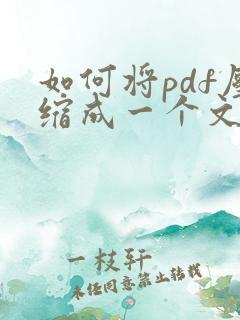 如何将pdf压
缩成一个文
一枝轩
未经同意禁止转载